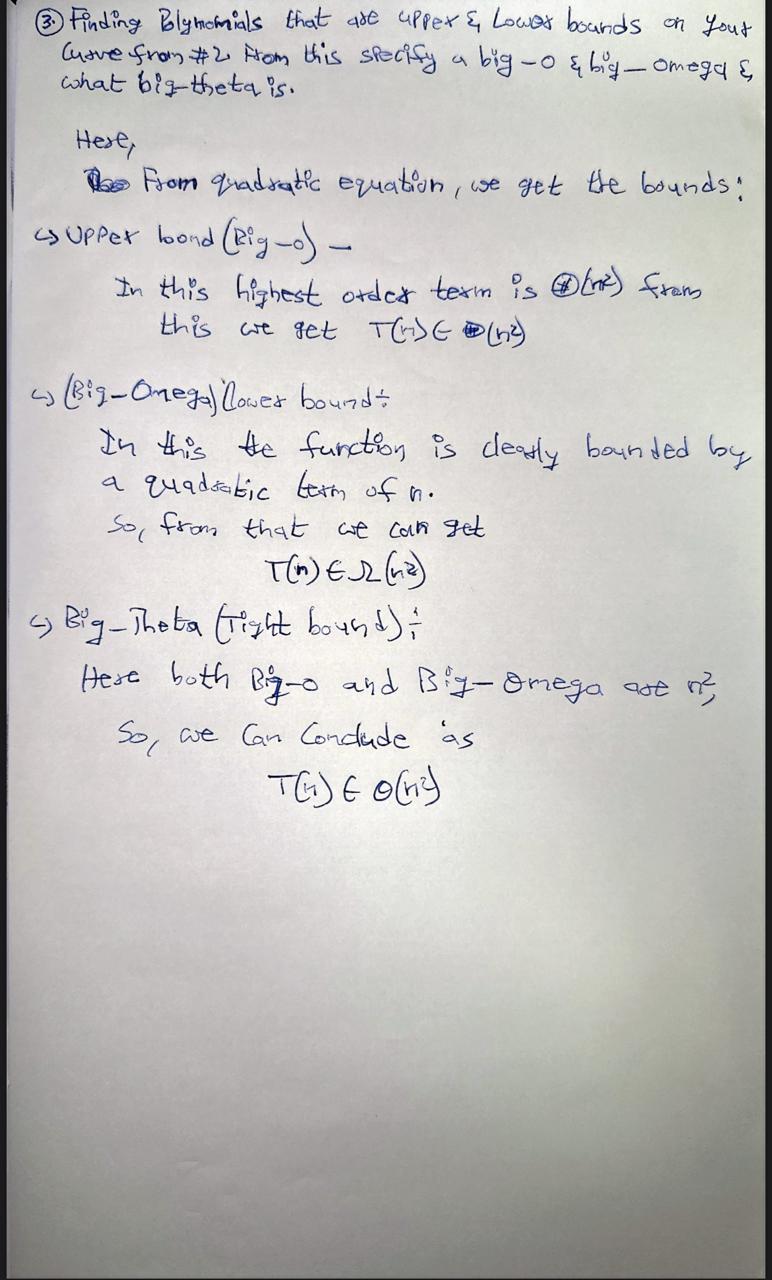 ③ Finding Polynomials that are upper & Lower bounds on your
Curve from #2 From this specify a big-O & big-omega &
what big-theta is.
Here,
From quadratic equation, we get the bounds:
↳ Upper bond (Big-O) –
In this highest order term is (n²) from
this we get T(n) ∈ O(n²)
↳ (Big-Omega) lower bound:
In this the function is clearly bounded by
a quadratic term of n.
So, from that we can get
T(n) ∈ Ω(n²)
↳ Big-Theta (Tight bound):
Here both Big-O and Big-Omega are n²,
So, we can Conclude as
T(n) ∈ Θ(n²)